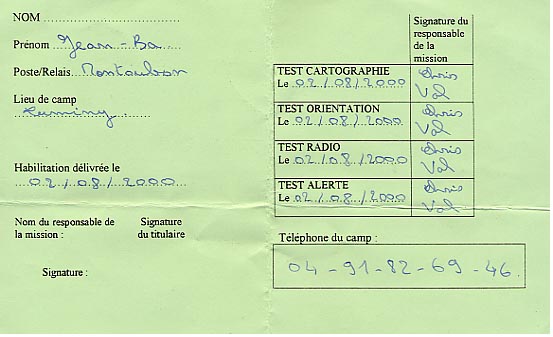 NOM
Prénom Jean-Ba
Poste/Relais Montauban
Lieu de camp
Luminy
Habilitation délivrée le
02/08/2000
Nom du responsable de
la mission :
Signature
du titulaire
Signature :
Signature du
responsable
de la
mission
TEST CARTOGRAPHIE
Le 02/08/2000
Chris
Val
TEST ORIENTATION
Le 02/08/2000
Chris
Val
TEST RADIO
Le 02/08/2000
Chris
Val
TEST ALERTE
Le 02/08/2000
Chris
Val
Téléphone du camp :
04-91-82-69-46.